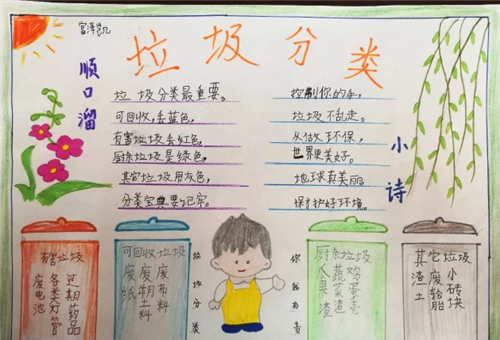 垃圾分类
顺口溜
垃圾分类最重要。
可回收,丢蓝色,
有害垃圾丢红色,
厨余垃圾是绿色,
其它垃圾用灰色,
分类宝典要记牢。
小诗
控制你的手,
垃圾不乱走。
从做环保,
世界更美好。
地球真美丽
保护好环境。
有害垃圾
过期药品
各类灯管
废电池
可回收垃圾
废布料
废期土料
废纸
垃圾分类
你我有责
厨余垃圾
鸡蛋壳
蔬菜渣
人果渣
其它垃圾
小砖块
废轮胎
渣土